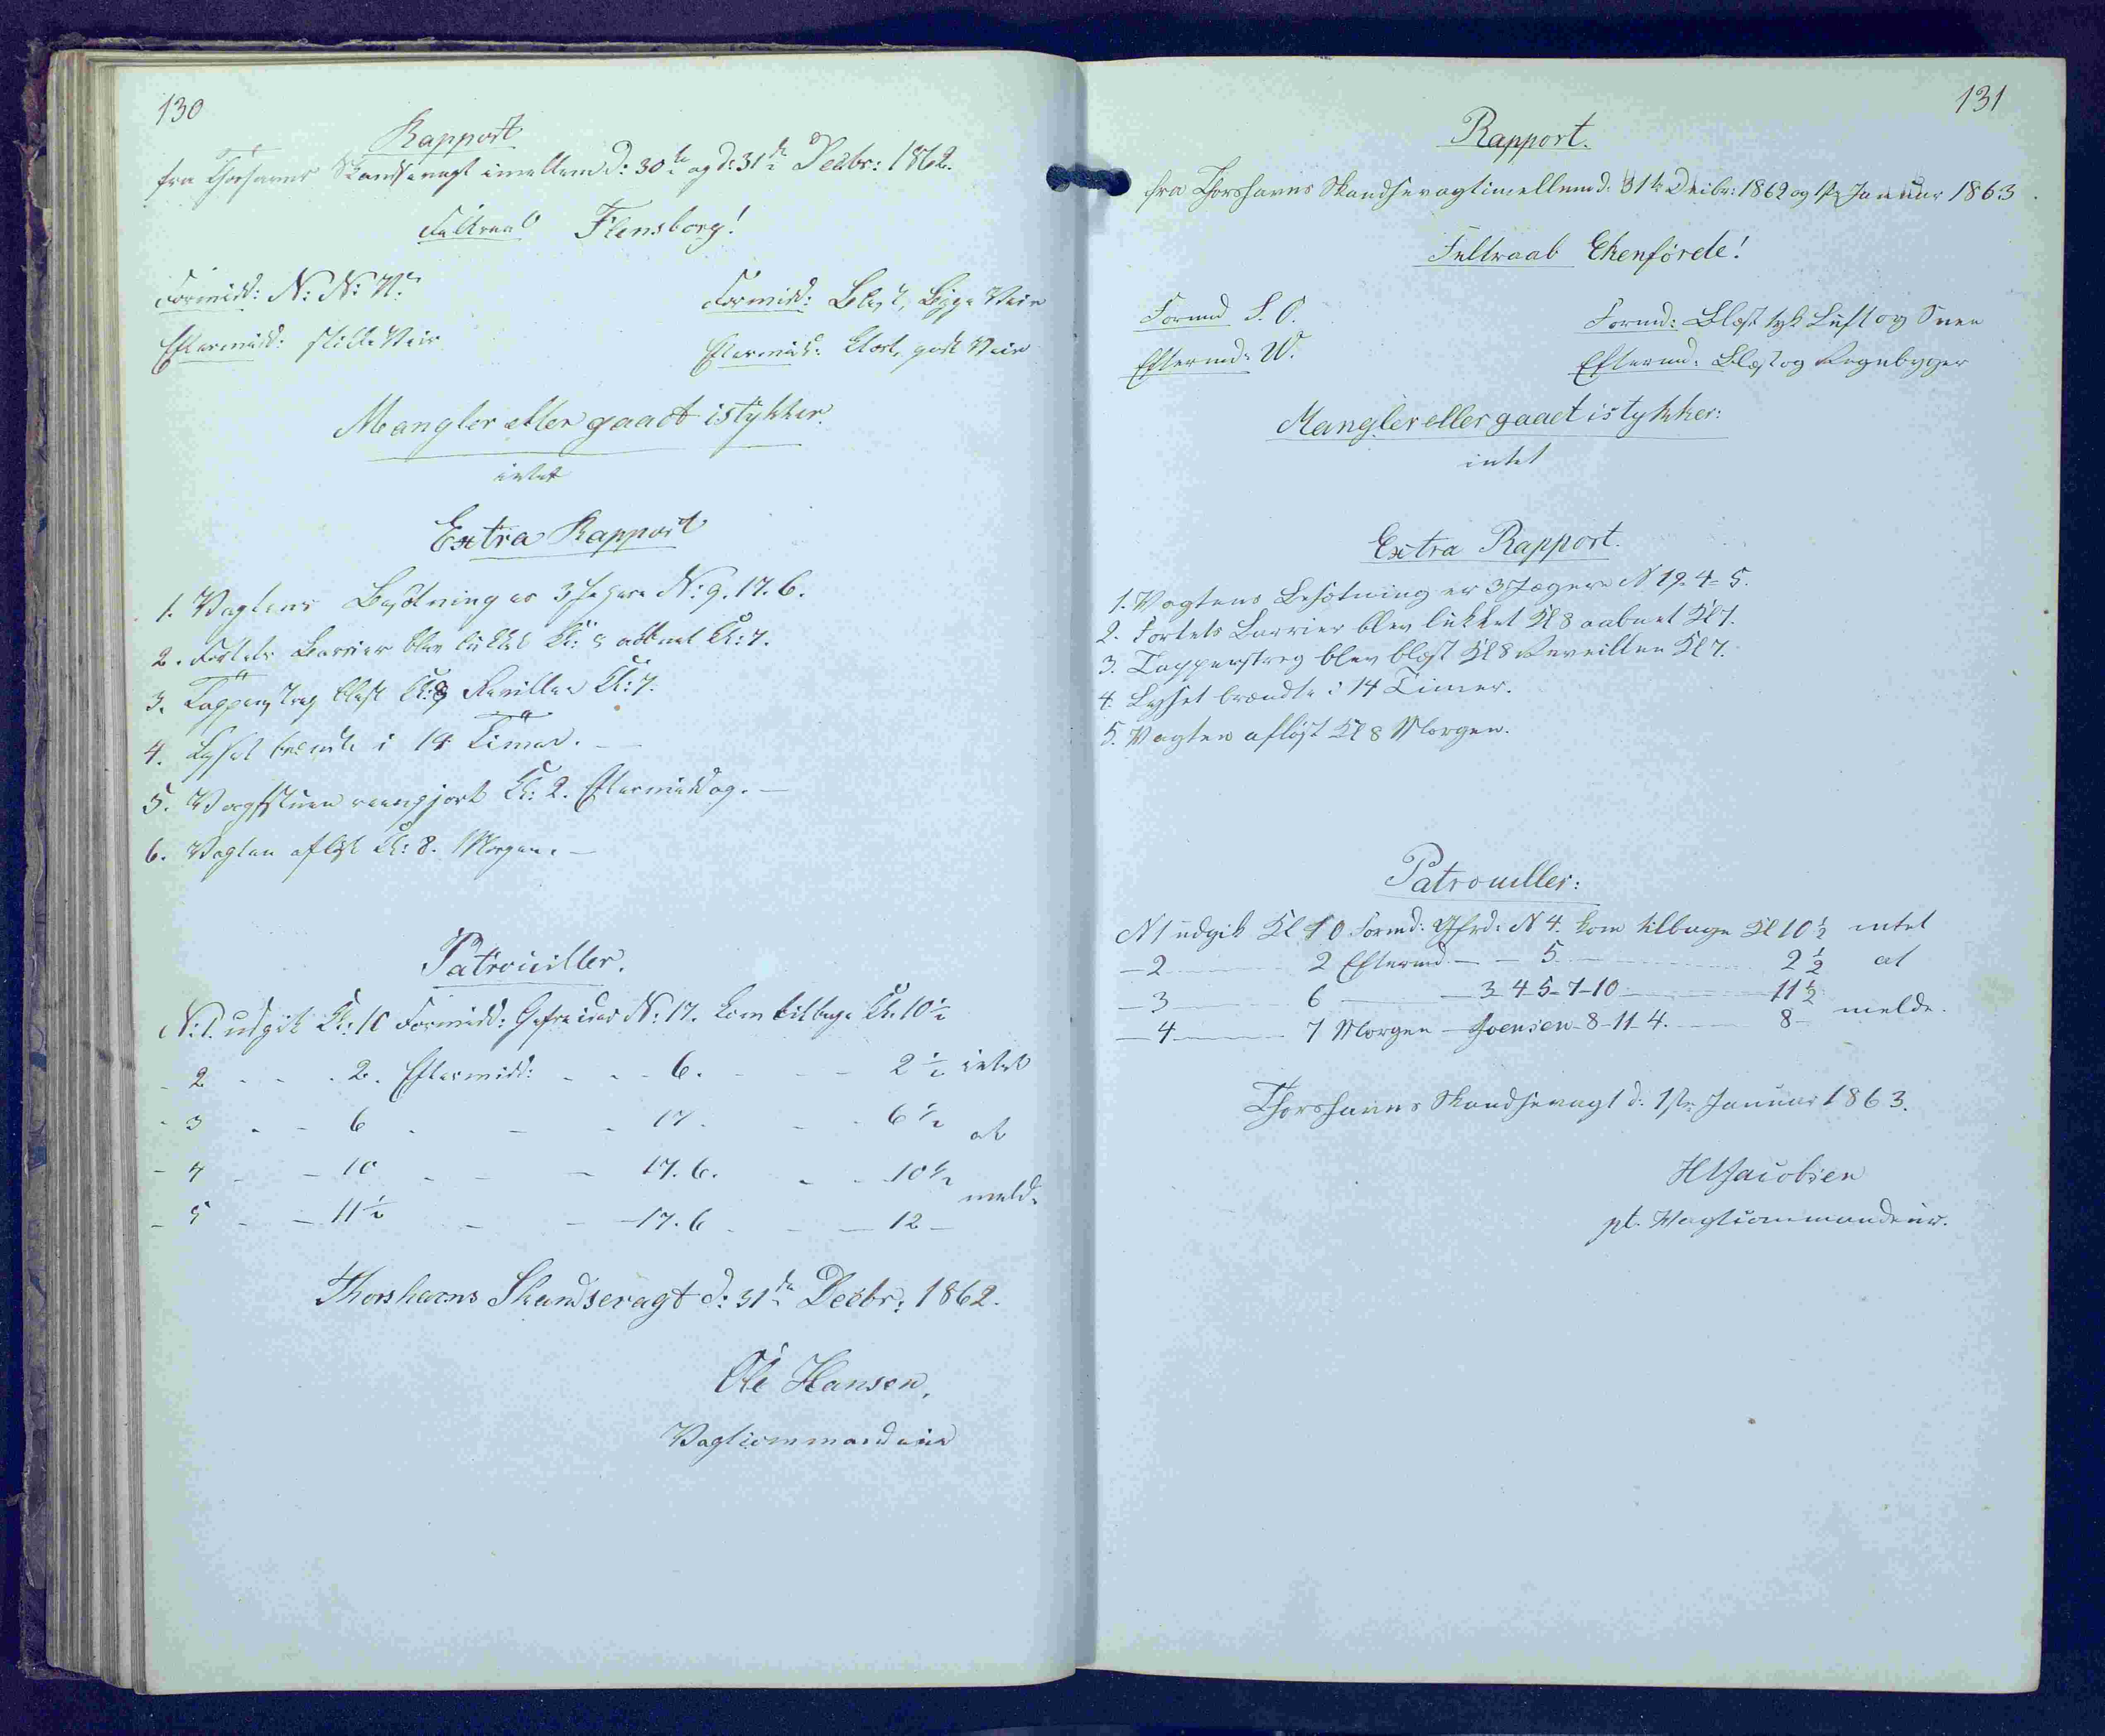 130
Rapport
fra Thorshavns Skandsevagt imellem d: 30te og d: 31te Decbr: 1862.
Feltraab Flensborg!
Formidd: N: N: V: Formidd: Blæst, Bygge Veir
Eftermidd: stille Veir Eftermidd: Blæst, godt Veir
Mangler eller gaaet istykker.
intet
Extra Rapport
1. Vagtens Besætning er 3 Jægere N: 9. 17. 6.
2. Fortets Barrier blev lukket Kl: 8 aabnet Kl: 7.
3. Tappenstreg blæst Kl: 8 Reveillen Kl: 7.
4. Lyset brændte i 14 Timer.
5. Vagtstuen reengjort Kl: 2. Eftermiddag. —
6. Vagten afløst Kl: 8. Morgen. —
Patrouiller.
N: 1. udgik Kl: 10 Formidd: Gefreider N: 17. kom tilbage Kl. 10½
- 2 - - . 2. Eftermidd: - - - 6. - - - 2½ intet
- 3 - - 6 - - - 17. - - 6½ at
- 4 - - 10 - - - 17. 6. - - 10½
- 5 - - 11½ - - - 17. 6 - - 12 - melde
Thorshavns Skandsevagt d: 31te Decbr: 1862.
Ole Hansen.
Vagtcommandeur
131
Rapport.
fra Thorshavns Skandsevagt imellem d. 31te Decbr: 1862 og 1ste Januar 1863.
Feltraab Ekenførde!
Formd S. O. Formd: Blæst tyk Luft og Snee
Eftermd: W. Eftermd: Blæst og Regnbyger
Mangler eller gaaet istykker:
intet
Extra Rapport.
1. Vagtens Besætning er 3 Jægere N 19. 4 - 5.
2. Fortets Barrier blev lukket Kl 8 aabnet Kl 7.
3. Tappenstreg blev blæst Kl 8 Reveillen Kl 7.
4. Lyset brændte i 14 Timer.
5. Vagten afløst Kl 8 Morgen.
Patrouiller:
N 1 udgik Kl 10 Formd: Gfrd: N 4. kom tilbage Kl 10½ intet
— 2 — 2 Eftermd — — 5 — 2½ at
— 3 — 6 — 3 4 5 - 7 - 10 — 11½
— 4 — 7 Morgen — Joensen - 8 - 11 4. — 8 — melde.
Thorshavns Skandsevagt d: 1ste Januar 1863.
Jacobsen
pt. Vagtcommandeur.